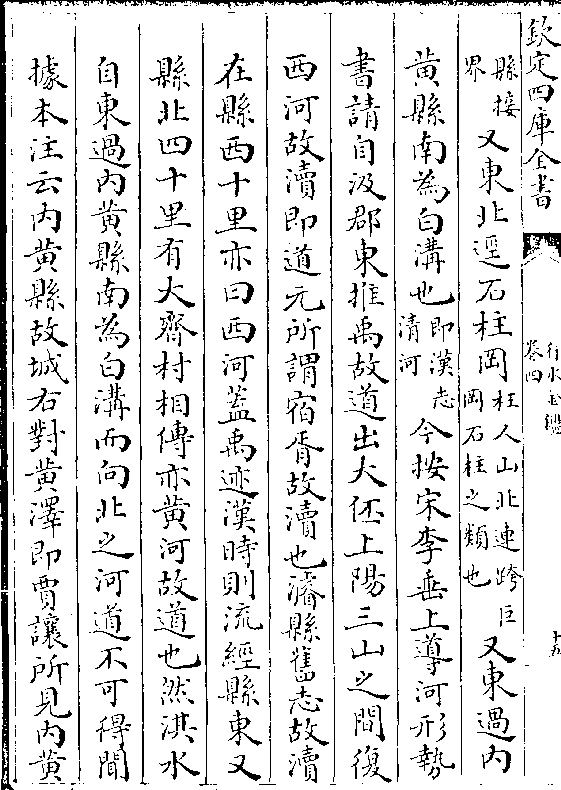 欽定四庫全書
行水金鑑
卷四
十五
縣接界又東北逕石柱岡枉人山北連跨巨岡石柱之類也又東過内
黄縣南為白溝也即漢志清河今按宋李垂上導河形勢
書請自汲郡東推禹故道出大伾上陽三山之間復
西河故瀆即道元所謂宿胥故瀆也濬縣舊志故瀆
在縣西十里亦曰西河葢禹迹漢時則流經縣東又
縣北四十里有大齊村相傳亦黄河故道也然淇水
自東過内黄縣南為白溝而向北之河道不可得聞
據本注云内黄縣故城右對黄澤即賈讓所見内黄